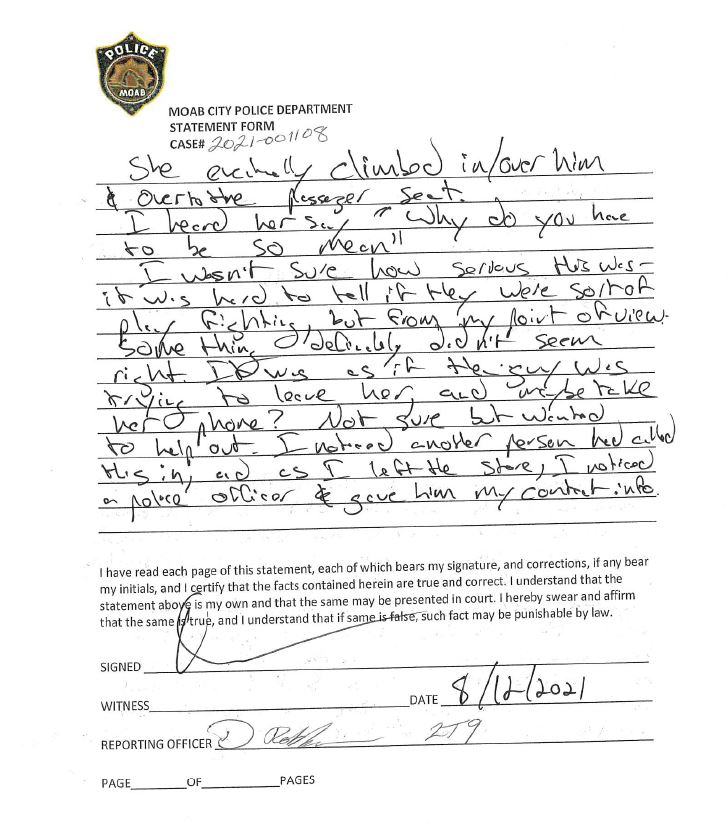 POLICE
MOAB
MOAB CITY POLICE DEPARTMENT
STATEMENT FORM
CASE# 2021-001108
She climbed in/over him
& over to the passezer seat.
I heard her say " Why do you have
to be so mean"
I wasn't sure how serious this was -
it was hard to tell if they were sort of
play fighting, but from my point of view
something definitely didn't seem
right. It was as if the guy was
trying to leave her, and maybe take
her phone? Not sure but wanted
to help out. I noticed another person had called
this in, ad as I left the store, I noticed
a police officer & gave him my contact info.
I have read each page of this statement, each of which bears my signature, and corrections, if any bear
my initials, and I certify that the facts contained herein are true and correct. I understand that the
statement above is my own and that the same may be presented in court. I hereby swear and affirm
that the same is true, and I understand that if same is false, such fact may be punishable by law.
SIGNED
WITNESS DATE 8/12/2021
REPORTING OFFICER 2T9
PAGE OF PAGES